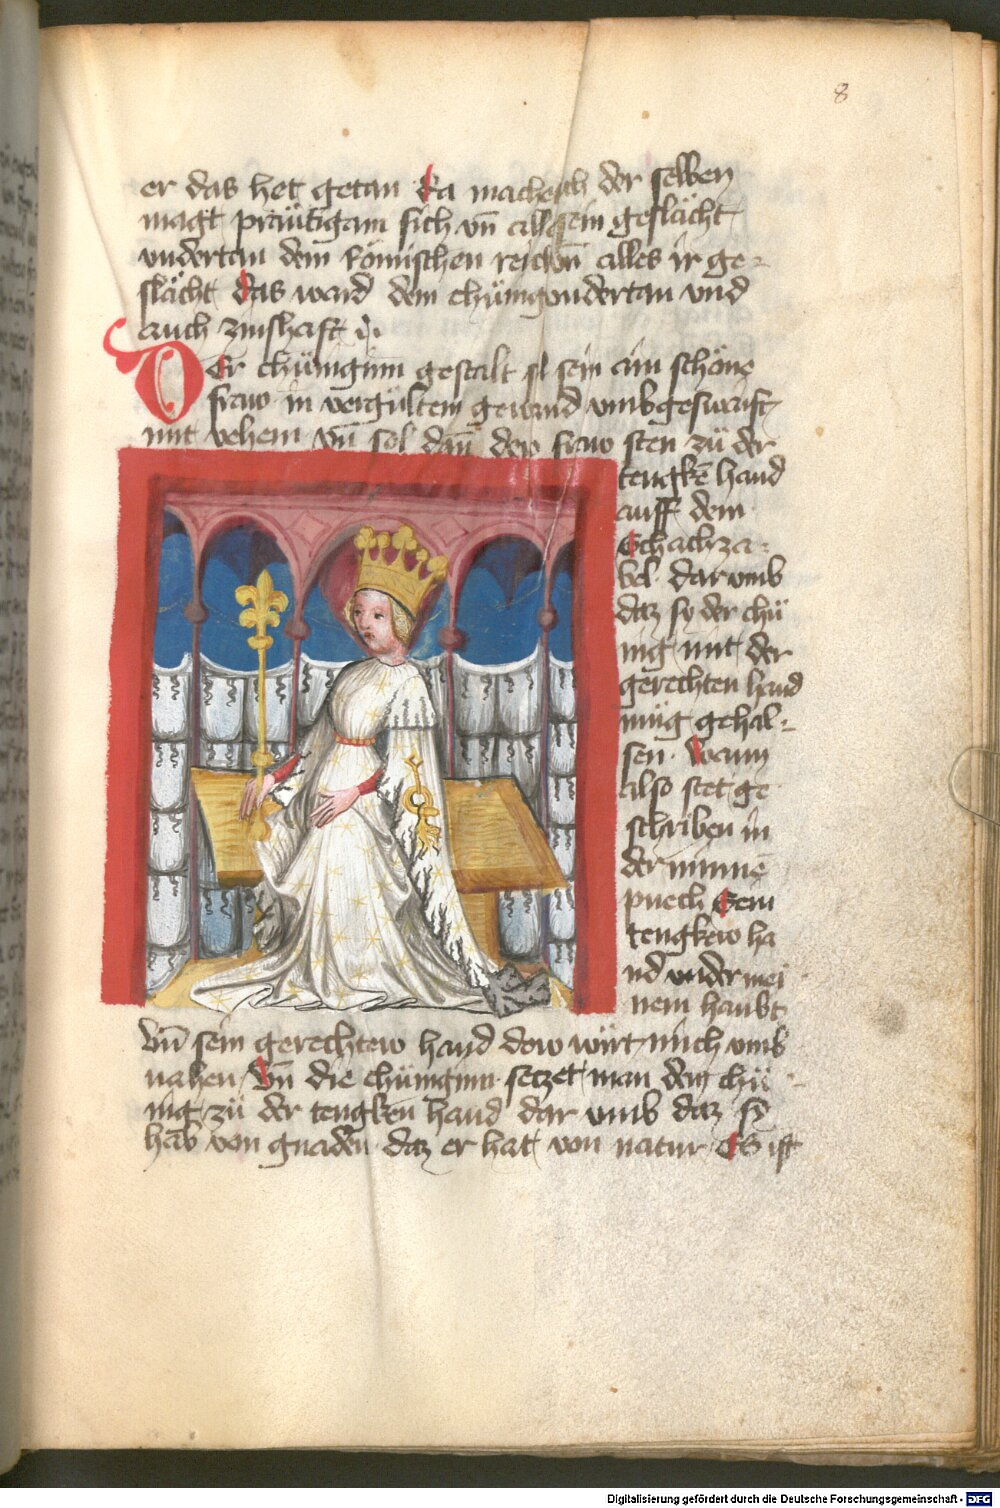 8
er das het getan da machet sich der selben
magt präutigam sich vn̄ all sein geslächt
vndertan dem Römischen reich vn̄ alles ir ge-
slächt das ward dem chünig vndertan vnd
auch zinshaft
Der chüniginn gestalt sol sein ain schöne
fraw in vergültem gewand vmbgeswaift
mit vehem vn̄ sol dan̄ dew fraw sten zü der
tengkē hand
auff dem
Schachza-
bel darumb
daz sy der chü
nig mit der
gerechten hand
müg gehal-
sen. Wann
also stet ge
schriben in
der minnē
puech Sein
tengkew ha
nd vnder mei
nem haubt
Vn̄ sein gerechtew hand dew wirt mich vmb
vahen Vn̄ die chüniginn setzet man dem chü
nig zü der tengken hand dar vmb daz sy
hab von gnaden daz er hat von natur Es ist
Digitalisierung gefördert durch die Deutsche Forschungsgemeinschaft - DFG